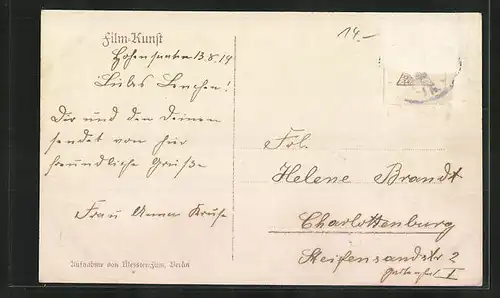 Film-Kunst
14.-
13.8.19
Liebes Lenchen!
Dir und den Deinen
sendet von hier
freundliche Grüße
Frau Anna Kruse
Frl.
Helene Brandt
Charlottenburg
Steifensandstr 2
Aufnahme von Messter-Film, Berlin